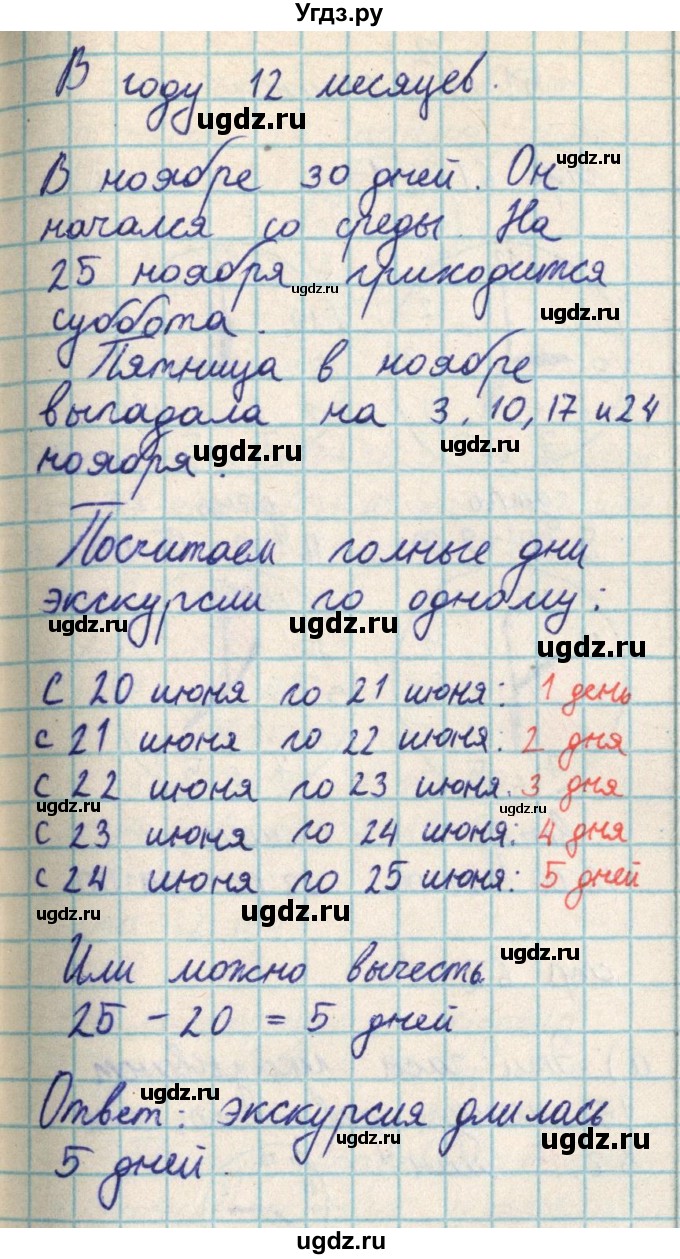 Угдз.ру
В году 12 месяцев.
ugdz.ru
ugdz.ru
В ноябре 30 дней. Он
начался со среды. На
25 ноября приходится
ugdz.ru
ugdz.ru
суббота.
Пятница в ноябре
выпадала на 3, 10, 17 и 24
ноября.
ugdz.ru
ugdz.ru
Посчитаем полные дни
экскурсии по одному:
ugdz.ru
ugdz.ru
ugdz.ru
С 20 июня по 21 июня: 1 день
с 21 июня по 22 июня: 2 дня
с 22 июня по 23 июня: 3 дня
ugdz.ru
ugdz.ru
с 23 июня по 24 июня: 4 дня
с 24 июня по 25 июня: 5 дней
ugdz.ru
ugdz.ru
Или можно вычесть
ugdz.ru
25 - 20 = 5 дней
ugdz.ru
Ответ: экскурсия длилась
ugdz.ru
ugdz.ru
5 дней.
ugdz.ru